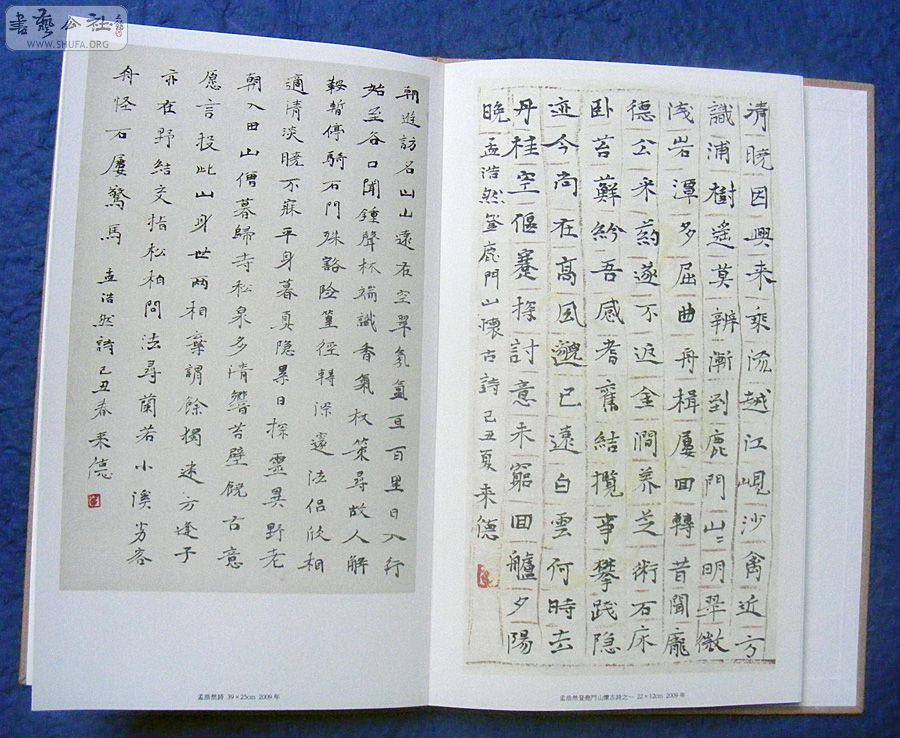 書藝公社
WWW.SHUFA.ORG
朝遊訪名山山遠在空翠氛氳亘百里日入行
始至谷口聞鍾聲林端識香氣杖策尋故人解
鞍暫停騎石門殊豁险篁徑轉深邃法侣欣相
適清淡曉不寐平身暮真隐累日探靈異野老
朝入田山僧暮歸寺松泉多清響苔壁饒古意
愿言投此山身世两相棄謂餘獨迷方逢子
亦在野結交指松柏問法尋蘭若小溪劣容
舟怪石屢驚馬 孟浩然詩己丑春来德
孟浩然詩 39×25cm 2009年
清曉因興来乘流越江峴沙禽近方
識浦樹遥莫辨漸到鹿門山〻明翠微
浅岩潭多屈曲舟楫屢回轉昔聞龐
德公采葯遂不返金澗养芝術石床
卧苔蘚紛吾感耆舊結揽事攀践隐
迹今尚在高風邈已遠白雲何時去
丹桂空偃蹇探討意未窮回艫夕陽
晚 孟浩然登鹿門山懷古詩 己丑夏来德
孟浩然登鹿門山懷古詩之一 22×12cm 2009年